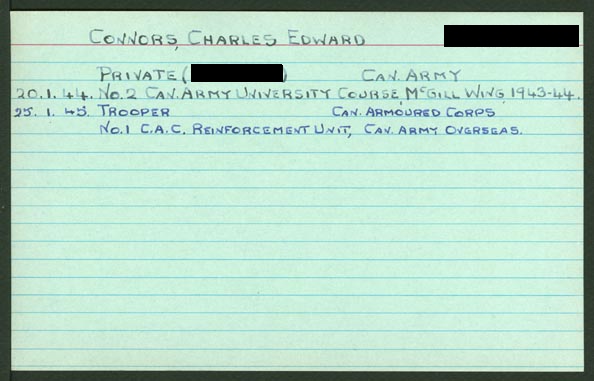 CONNORS, CHARLES EDWARD
PRIVATE ( ) CAN. ARMY
20.1.44. No.2 CAN. ARMY UNIVERSITY COURSE, McGILL WING 1943-44.
25.1.45. TROOPER CAN. ARMOURED CORPS
No.1 C.A.C. REINFORCEMENT UNIT, CAN. ARMY OVERSEAS.